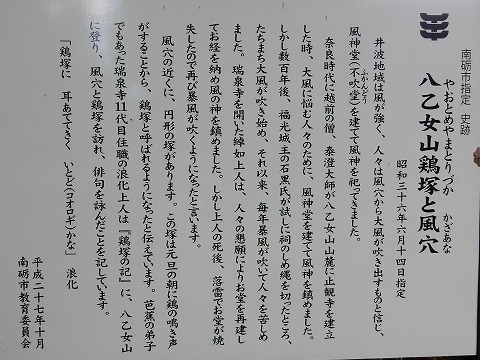 南砺市指定 史跡
やおとめやまとりづか かざあな
八乙女山鶏塚と風穴
昭和三十六年六月十四日指定
井波地域は風が強く、人々は風穴から大風が吹き出すものと信じ、
ふかんどう
風神堂(不吹堂)を建てて風神を祀ってきました。
奈良時代に越前の僧、泰澄大師が八乙女山山麓に止観寺を建立
した時、大風に悩む人々のために、風神堂を建てて風神を鎮めました。
しかし数百年後、福光城主の石黒氏が試しに祠のしめ縄を切ったところ、
たちまち大風が吹き始め、それ以来、毎年暴風が吹いて人々を苦しめ
ました。瑞泉寺を開いた綽如上人は、人々の懇願によりお堂を再建し
てお経を納め風の神を鎮めました。しかし上人の死後、落雷でお堂が焼
失したので再び暴風が吹くようになったと言います。
風穴の近くに、円形の塚があります。この塚は元旦の朝に鶏の鳴き声
がすることから、鶏塚と呼ばれるようになったと伝えています。芭蕉の弟子
でもあった瑞泉寺11代目住職の浪化上人は『鶏塚の記』に、八乙女山
に登り、風穴と鶏塚を訪れ、俳句を詠んだことを記しています。
「鶏塚に 耳あててきく いとど(コオロギ)かな」 浪化
平成二十七年十月
南砺市教育委員会